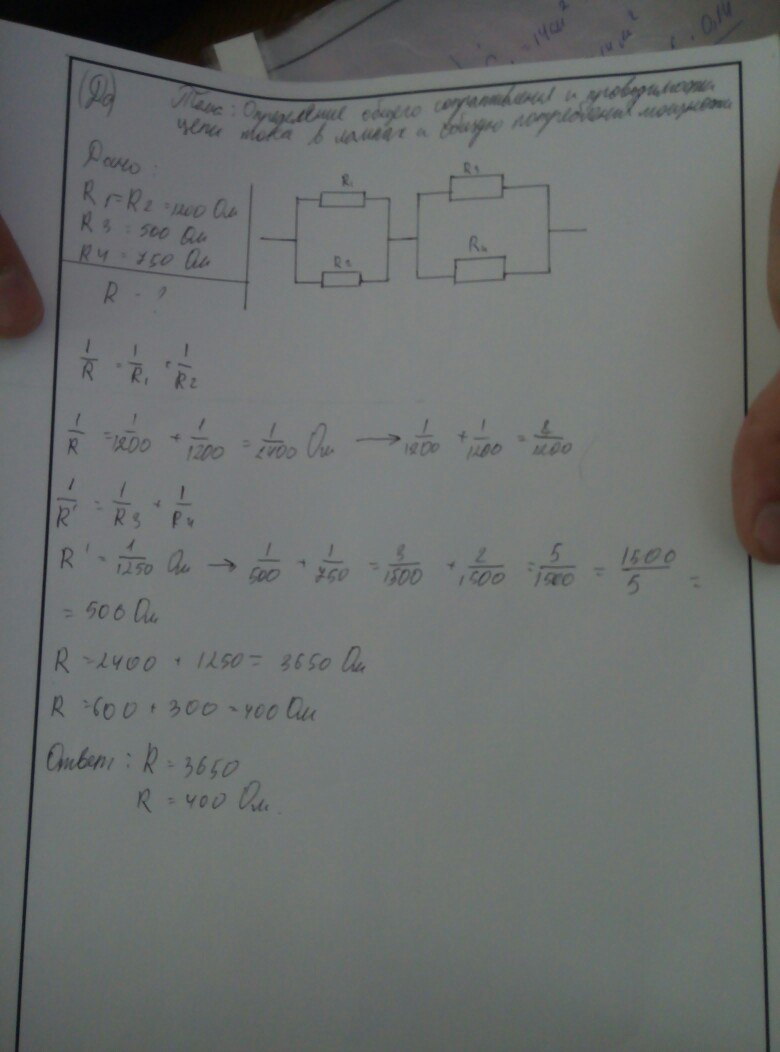 = 14 см²
(До) Тема: Определение общего сопротивления и проводимости
цепи тока в лампах и общую потребления мощности
Дано:
R1=R2=1200 Ом
R3=500 Ом
R4=750 Ом
R - ?
R1
R2
R3
R4
1/R = 1/R1 + 1/R2
1/R = 1/1200 + 1/1200 = 1/2400 Ом → 1/1200 + 1/1200 = 2/1200
1/R' = 1/R3 + 1/R4
R' = 1/1250 Ом → 1/500 + 1/750 = 3/1500 + 2/1500 = 5/1500 = 1500/5 =
= 500 Ом
R = 2400 + 1250 = 3650 Ом
R = 600 + 300 = 400 Ом
Ответ: R = 3650
R = 400 Ом.